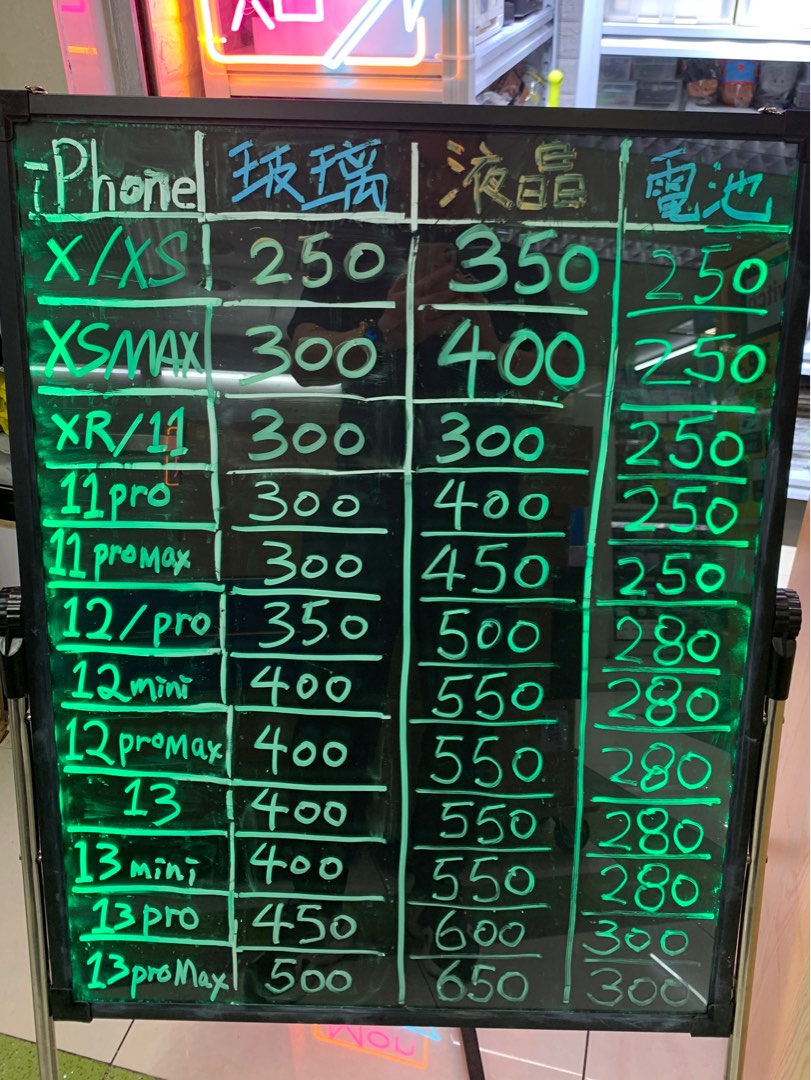 iPhone 玻璃 液晶 電池
X/XS 250 350 250
XSMAX 300 400 250
XR/11 300 300 250
11pro 300 400 250
11promax 300 450 250
12/pro 350 500 280
12mini 400 550 280
12promax 400 550 280
13 400 550 280
13mini 400 550 280
13pro 450 600 300
13proMax 500 650 300